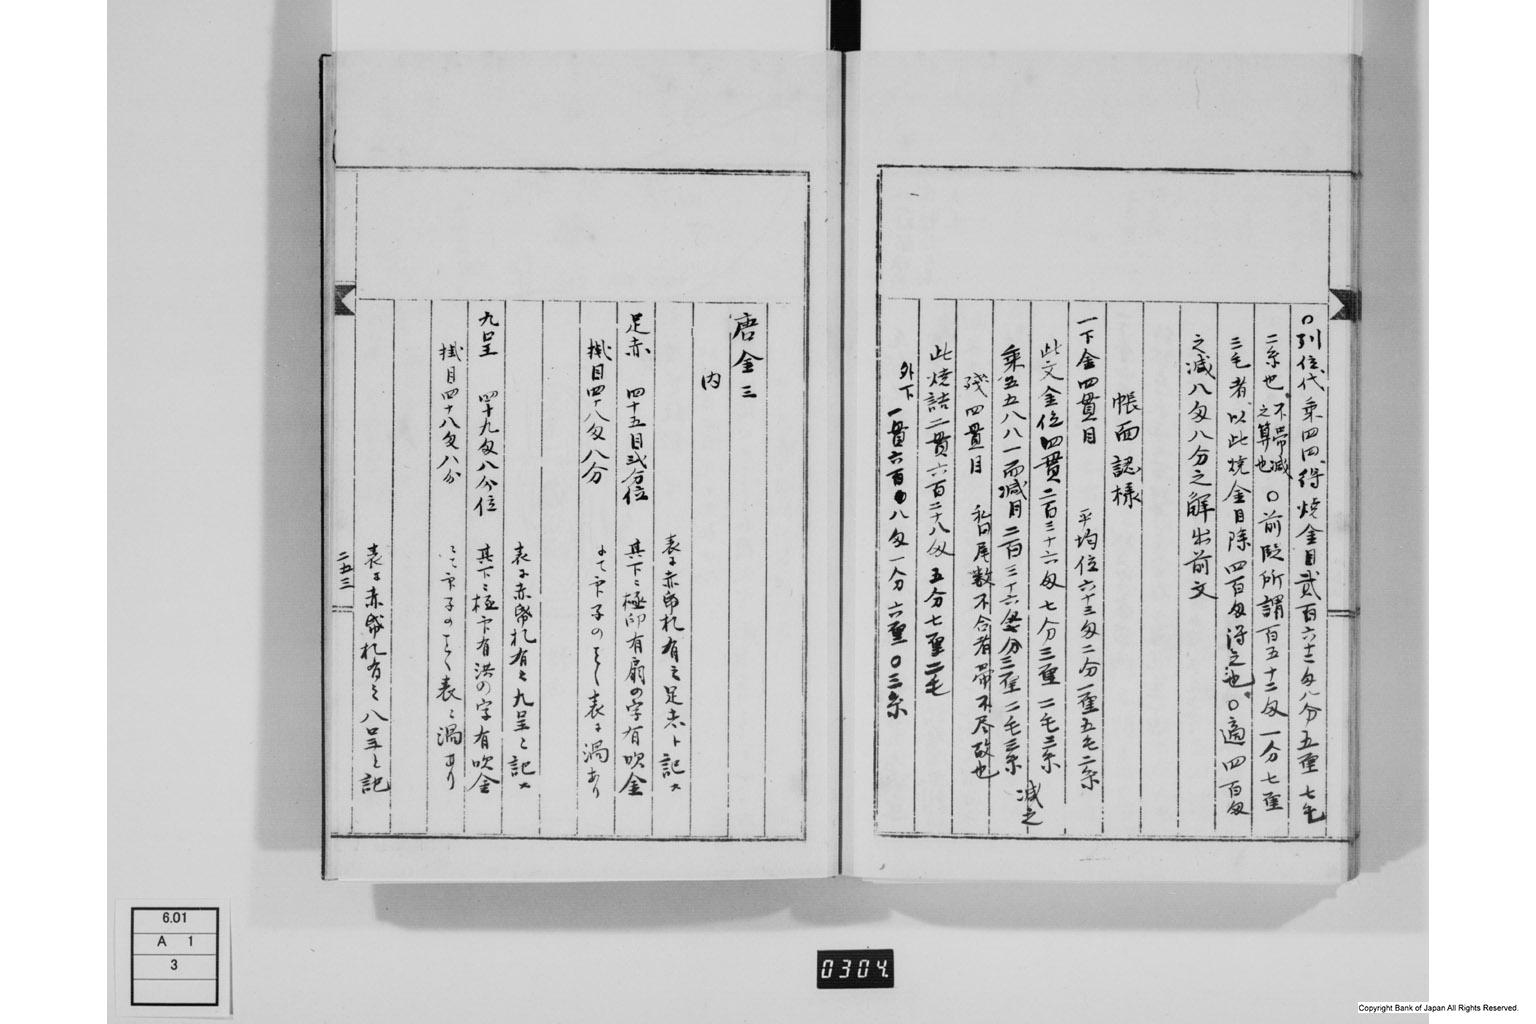 〇列位代乗四四得焼金目貳百六十二匁八分五厘七毛
二糸也不帯減之算也〇前段所謂百五十二匁一分七厘
三毛者以此焼金目除四百匁得之也〇適四百匁
之減八匁八分之解出前文
帳面認様
一下金四貫目 平均位六十三匁二分一厘五毛二糸
此文金位四貫二百三十六匁七分三厘一毛三糸
乗五五八八一而減目二百三十六匁七分三厘一毛三糸減之
残四貫目 私曰尾数不合者帯不尽故也
此焼詰二貫六百二十八匁五分七厘二毛
外下 一貫六百〇八匁一分六厘〇三糸
唐金三
内
表ニ赤印札有之足赤ト記ス
足赤 四十五目弐分位 其下ニ極印有扇の字有吹金
掛目四十八匁八分 表ニ渦あり
表ニ赤紙札有之九呈と記ス
九呈 四十九匁八分位 其下ニ極印有洪の字有吹金
掛目四十八匁八分 表ニ渦あり
表ニ赤紙札有之八呈と記
二五三
6.01
A 1
3
0304
Copyright Bank of Japan All Rights Reserved.